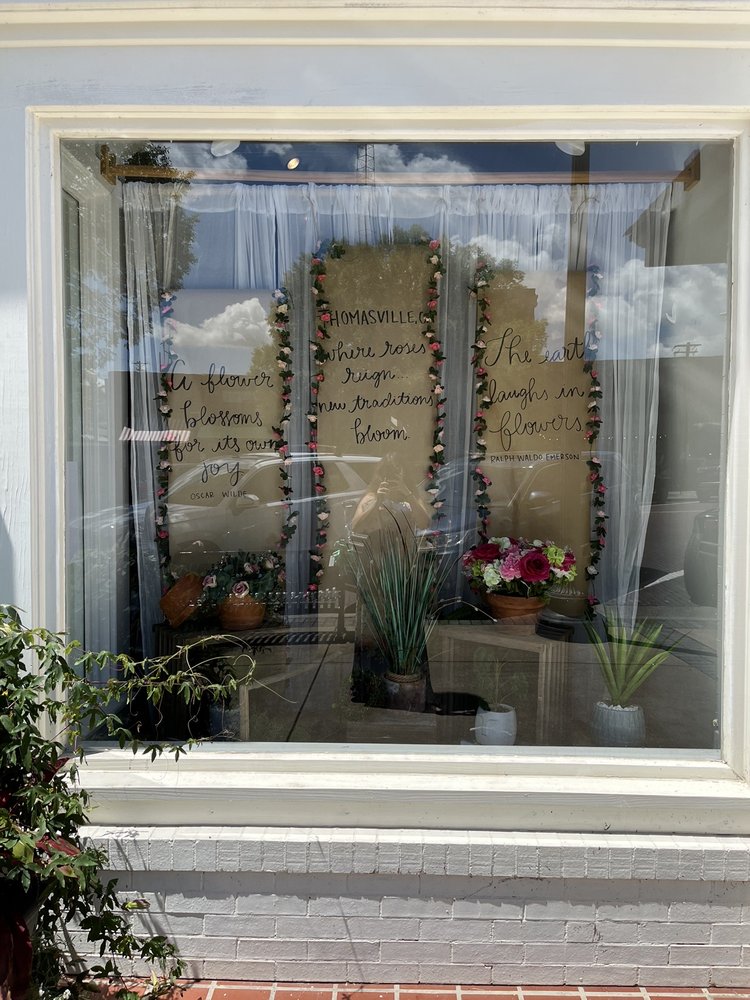 A flower
blossoms
for its own
joy
OSCAR WILDE
THOMASVILLE, GA
where roses
reign...
new traditions
bloom.
The earth
laughs in
flowers
RALPH WALDO EMERSON